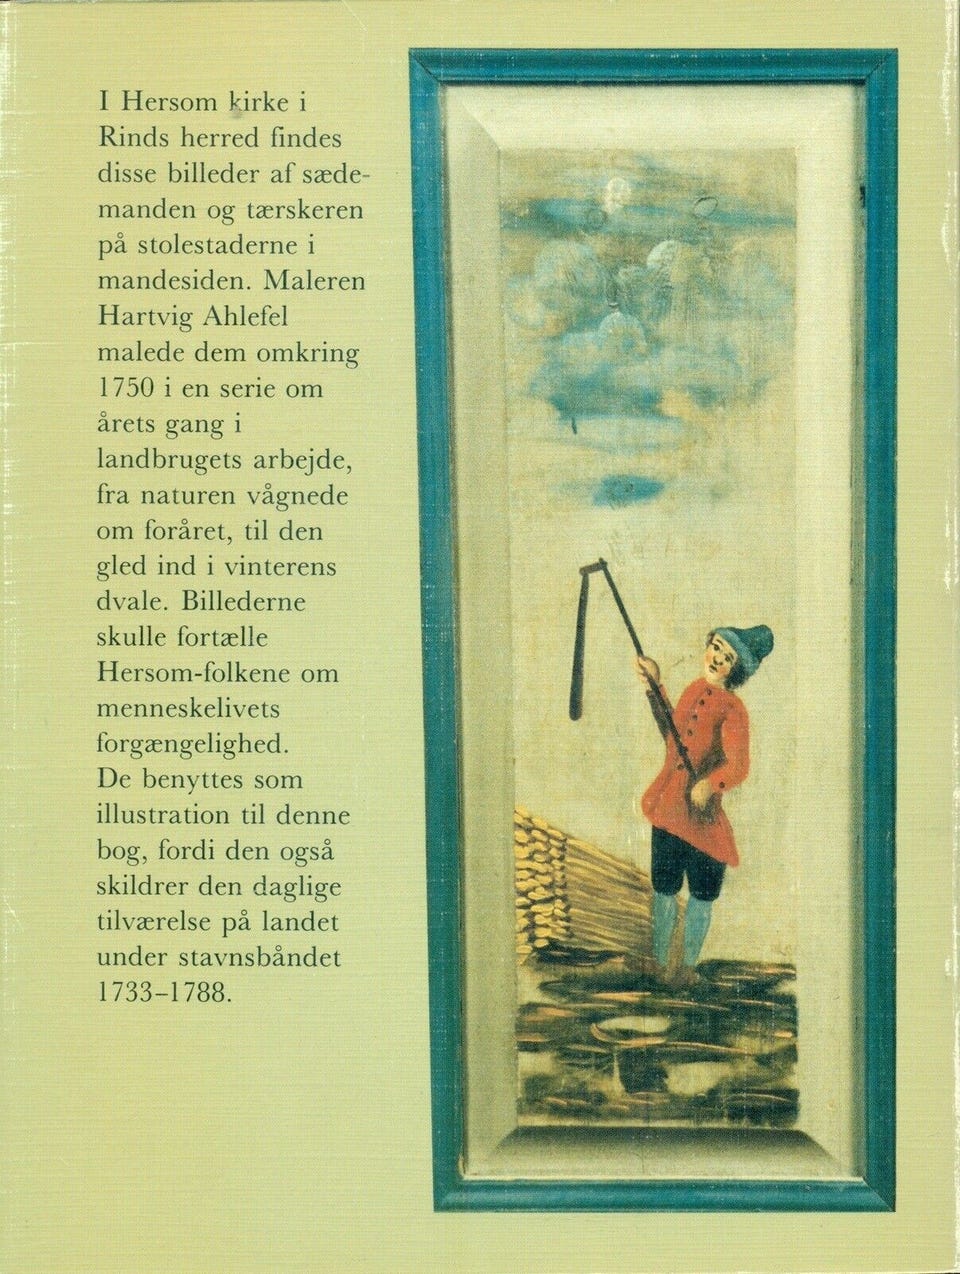 I Hersom kirke i
Rinds herred findes
disse billeder af sæde-
manden og tærskeren
på stolestaderne i
mandesiden. Maleren
Hartvig Ahlefel
malede dem omkring
1750 i en serie om
årets gang i
landbrugets arbejde,
fra naturen vågnede
om foråret, til den
gled ind i vinterens
dvale. Billederne
skulle fortælle
Hersom-folkene om
menneskelivets
forgængelighed.
De benyttes som
illustration til denne
bog, fordi den også
skildrer den daglige
tilværelse på landet
under stavnsbåndet
1733–1788.